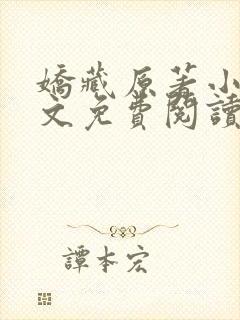 嬌藏原著小
文免費閱讀
譚本宏